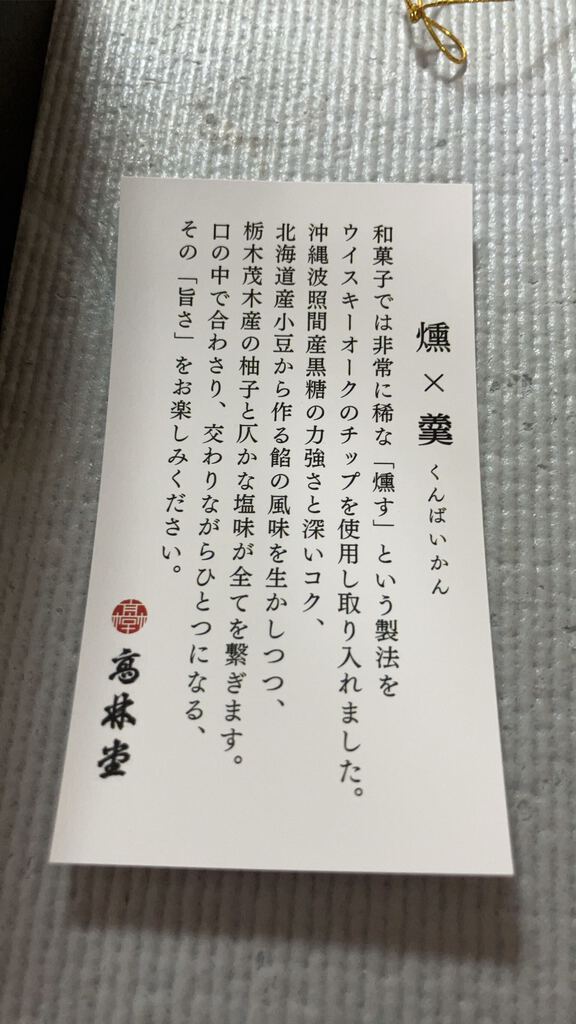 燻×羹 くんばいかん
和菓子では非常に稀な「燻す」という製法を
ウイスキーオークのチップを使用し取り入れました。
沖縄波照間産黒糖の力強さと深いコク、
北海道産小豆から作る餡の風味を生かしつつ、
栃木茂木産の柚子と仄かな塩味が全てを繋ぎます。
口の中で合わさり、交わりながらひとつになる、
その「旨さ」をお楽しみください。
高林堂